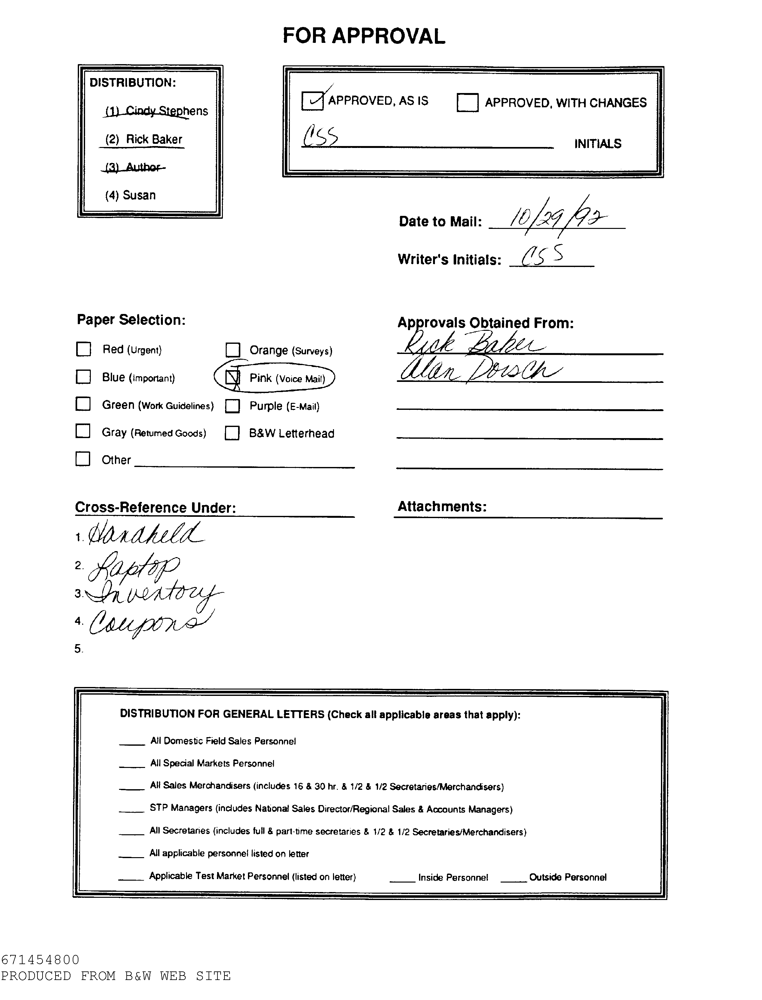 FOR APPROVAL
DISTRIBUTION:
(1) Cindy Stephens
(2) Rick Baker
(3) Author
(4) Susan
APPROVED, AS IS APPROVED, WITH CHANGES
CSS INITIALS
Date to Mail: 10/29/92
Writer's Initials: CSS
Paper Selection:
Red (Urgent) Orange (Surveys)
Blue (Important) Pink (Voice Mail)
Green (Work Guidelines) Purple (E-Mail)
Gray (Returned Goods) B&W Letterhead
Other
Approvals Obtained From:
Rick Baker
Alan Dorsch
Cross-Reference Under:
1. Handheld
2. Laptop
3. Inventory
4. Coupons
5.
Attachments:
DISTRIBUTION FOR GENERAL LETTERS (Check all applicable areas that apply):
All Domestic Field Sales Personnel
All Special Markets Personnel
All Sales Merchandisers (includes 16 & 30 hr. & 1/2 & 1/2 Secretaries/Merchandisers)
STP Managers (includes National Sales Director/Regional Sales & Accounts Managers)
All Secretaries (includes full & part-time secretaries & 1/2 & 1/2 Secretaries/Merchandisers)
All applicable personnel listed on letter
Applicable Test Market Personnel (listed on letter) Inside Personnel Outside Personnel
671454800
PRODUCED FROM B&W WEB SITE